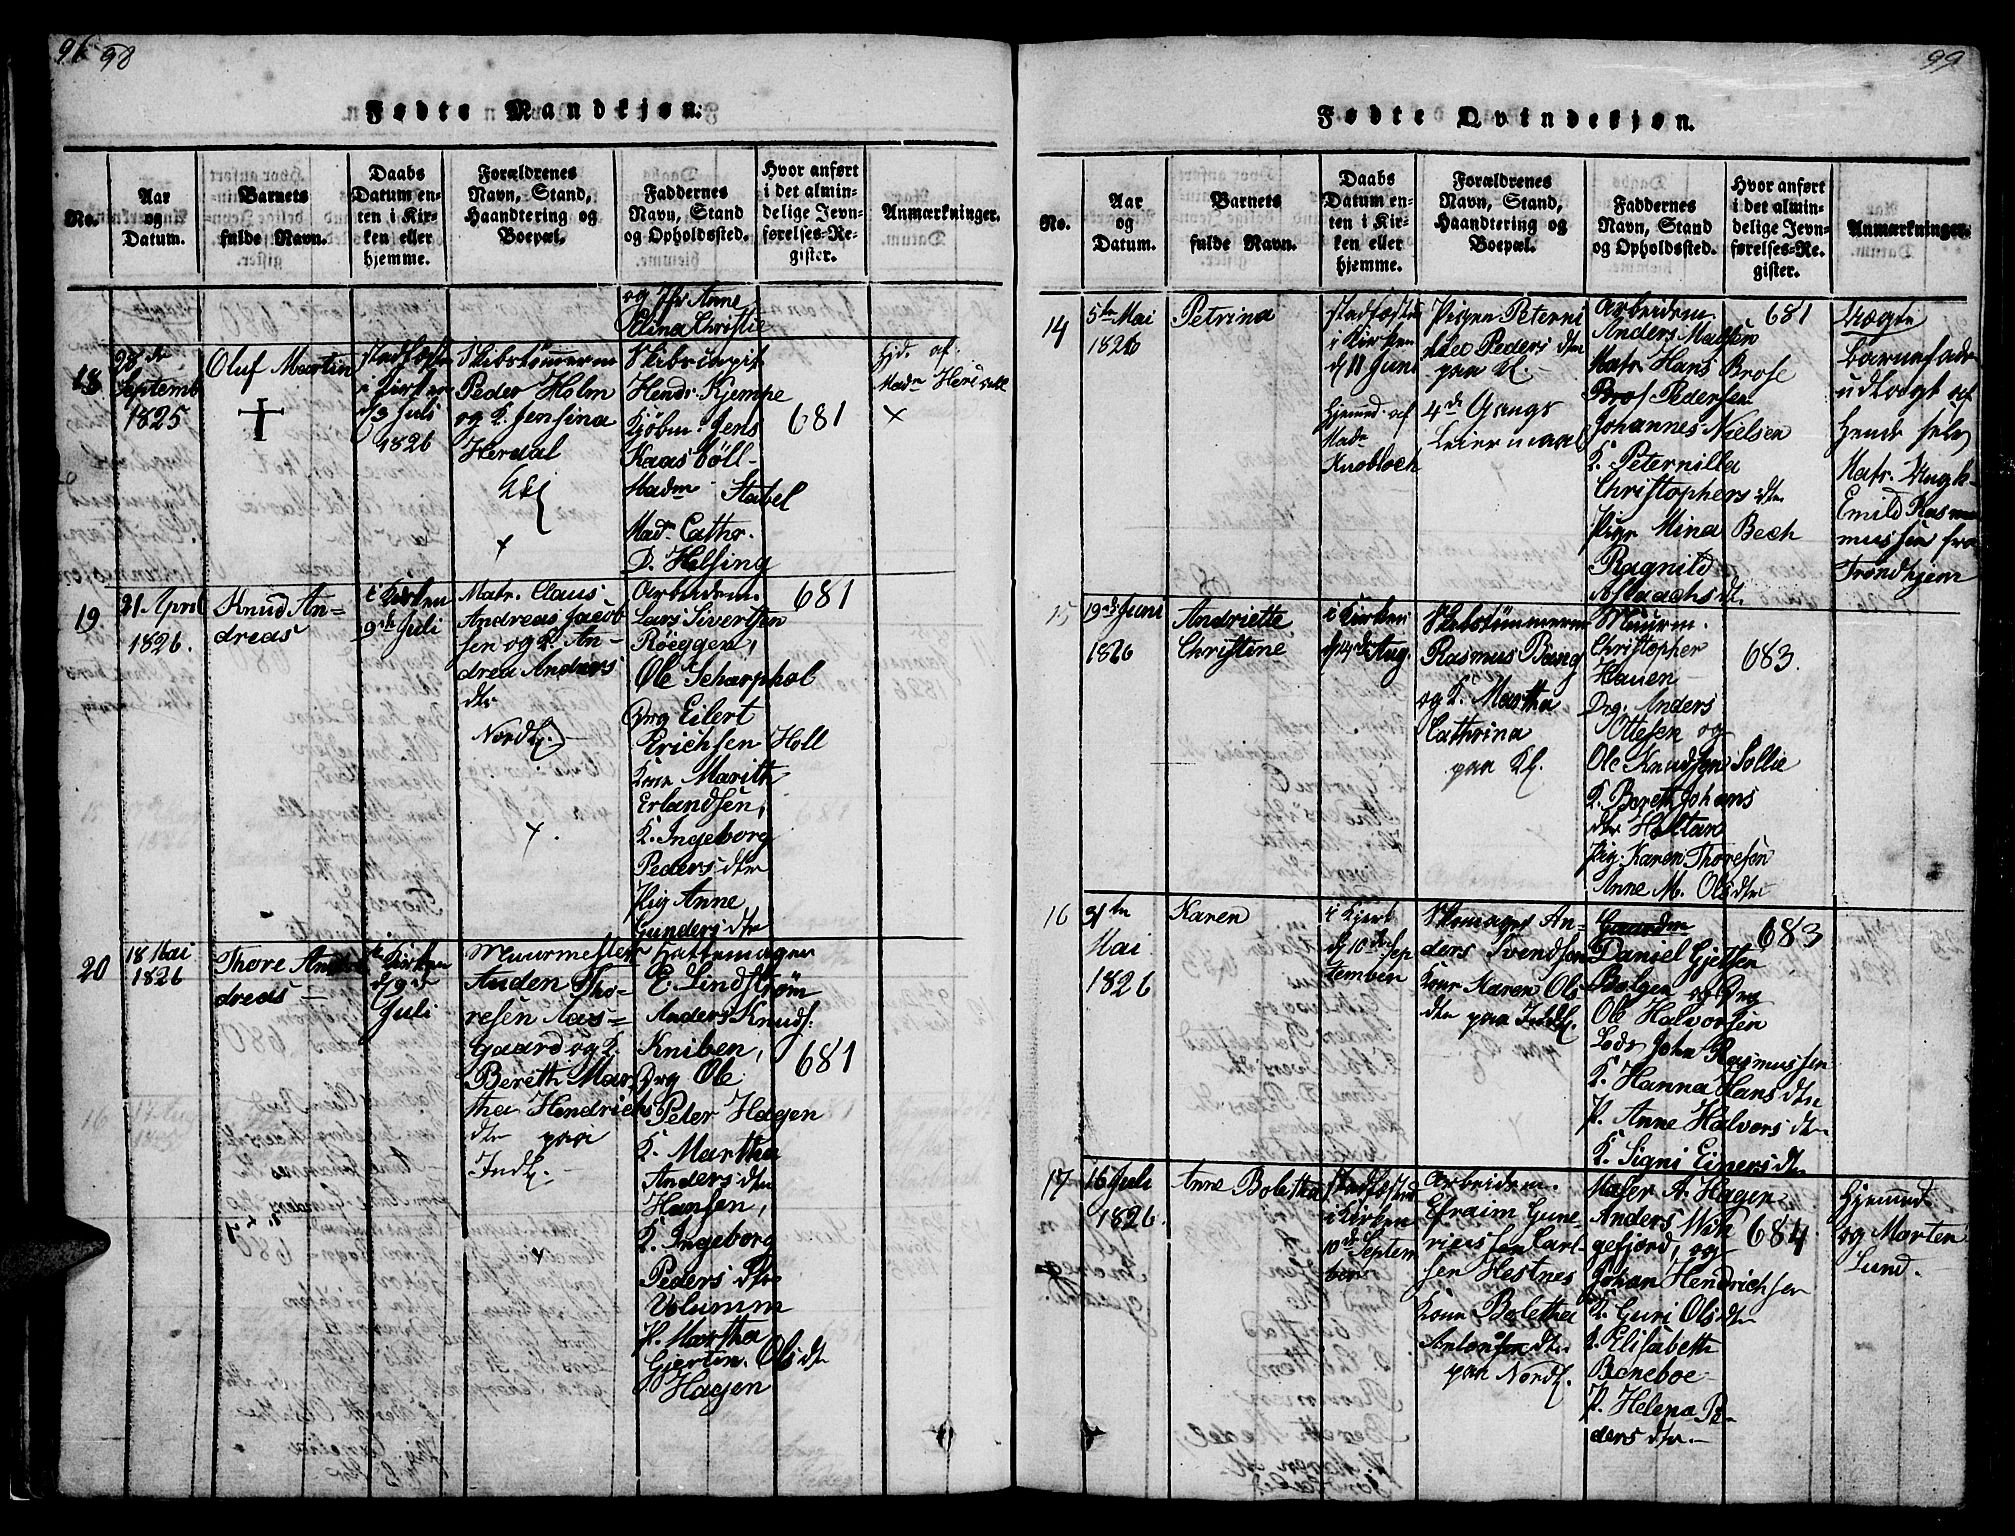 96 98
Fødte Mandkjøn.
No.
Aar
og
Datum.
Barnets
fulde Navn.
Daabs
Datum en-
ten i Kir-
ken eller
hjemme.
Forældrenes
Navn, Stand,
Haandtering og
Boepæl.
Faddernes
Navn, Stand
og Opholdssted.
Hvor anført
i det almin-
delige Jevn-
førelses-Re-
gister.
Anmærkninger.
og Jfr Anne
Elina Christie
18
28de
Septemb
1825
Oluf Martin
i Kirken
d 9 Juli
1826
Skibstømmerm
Peder Holm
og K. Jensina
Herdal
Skibscapit
Hendr. Kjempe
Kjøbm. Jens
Kaasbøll
Madm Stabel
Madm Cathr.
D. Helsing
681
Hjd. af
Madm
19
21 April
1826.
Knud An-
dreas
i Kirken
9de Juli
Matr. Claus
Andreas Jacob
sen og K. An-
drea Anders
dtr
Nordl.
Arbeidsm.
Lars Sivertsen
Røeggen,
Ole Scharphol
Drg Eilert
Erichsen Holl
Kone Marith
Erlandsen,
K. Ingeborg
Peders dtr
Pig Anne
Gunders dtr
681
20
18 Mai
1826
Thore An
dreas
i Kirken
d 9de
Juli
Muurmester
Auden Tho-
resen Aas-
gaard og K.
Bereth Mar
tha Hendrichs
dtr paa
Indl.
Hattemager
E. Lindstrøm
Anders Knuds:
Kniben,
Drg Ole
Peter Hagen
K. Martha
Anders dtr
Hansen,
K. Ingeborg
Peders dtr
Volumm
P. Martha
Gjertin. Ols dtr
Hagen
681
99
Fødte Qvindekjøn.
No.
Aar
og
Datum.
Barnets
fulde Navn.
Daabs
Datum en-
ten i Kir-
ken eller
hjemme.
Forældrenes
Navn, Stand,
Haandtering og
Boepæl.
Faddernes
Navn, Stand
og Opholdssted.
Hvor anført
i det almin-
delige Jevn-
førelses-Re-
gister.
Anmærkninger.
14
5te Mai
1826
Petrina
Stadfæstet
i Kirken
d 11 Juni
Hjemmed. af
Mad
Knobloch
Pigen Peterni
lle Peders dtr
paa Kl.
4de Gangs
Leiermaal
Arbeidsm.
Anders Madsen
Matr. Hans Brose
Pedersen
Johannes Nielsen
K. Peternilla
Christophers dtr
Pige Mina Bech
Ragnild
Aslachs dt.
681
Uægte
Barnefader
udlagt af
hende selv
Matr. Ungk.
Emild Ras
mussen fra
Trondhjem
15
19de Juni
1826
Andriette
Christine
i Kirken
Aug.
Skibstømmerm
Rasmus Bang
og K. Martha
Cathrina
paa Kl.
Muurm.
Christopher
Hauen
Drg. Anders
Ottesen og
Ole Knudsen Sollie
K. Bereth Johans
dtr Holtan
Pig. Karen Thoresen
Anne M. Olsdtr
683.
16
31te
Mai
1826
Karen
i Kierk
d 10de Sep
tember
Skomager An-
ders Svendsen
Kone Karen Ols
dtr paa Indl.
Daniel Gjertsen
Bolgen og Drg
Ole Halvorsen
Lods John Rasmussen
K. Hanna Hans dtr
P. Anne Halvors dtr
K. Signi Einers dtr
683
17
16 Juli
1826.
Anne Boletha
Stadfæstet
i Kirken
10de Septem
ber
Arbeidsm.
Efraim Gune-
riussen Carl-
sen Hestnes
Kone Boletha
Antonsen dtr
paa Nordl.
Maser A. Hagen
Anders Win
gefjord, og
Johan Hendrichsen
K. Guri Ols dtr
K. Elisabeth
Boneboe
P. Helena Pe-
ders dtr.
684
Hjemmed
og Morten
Lund.